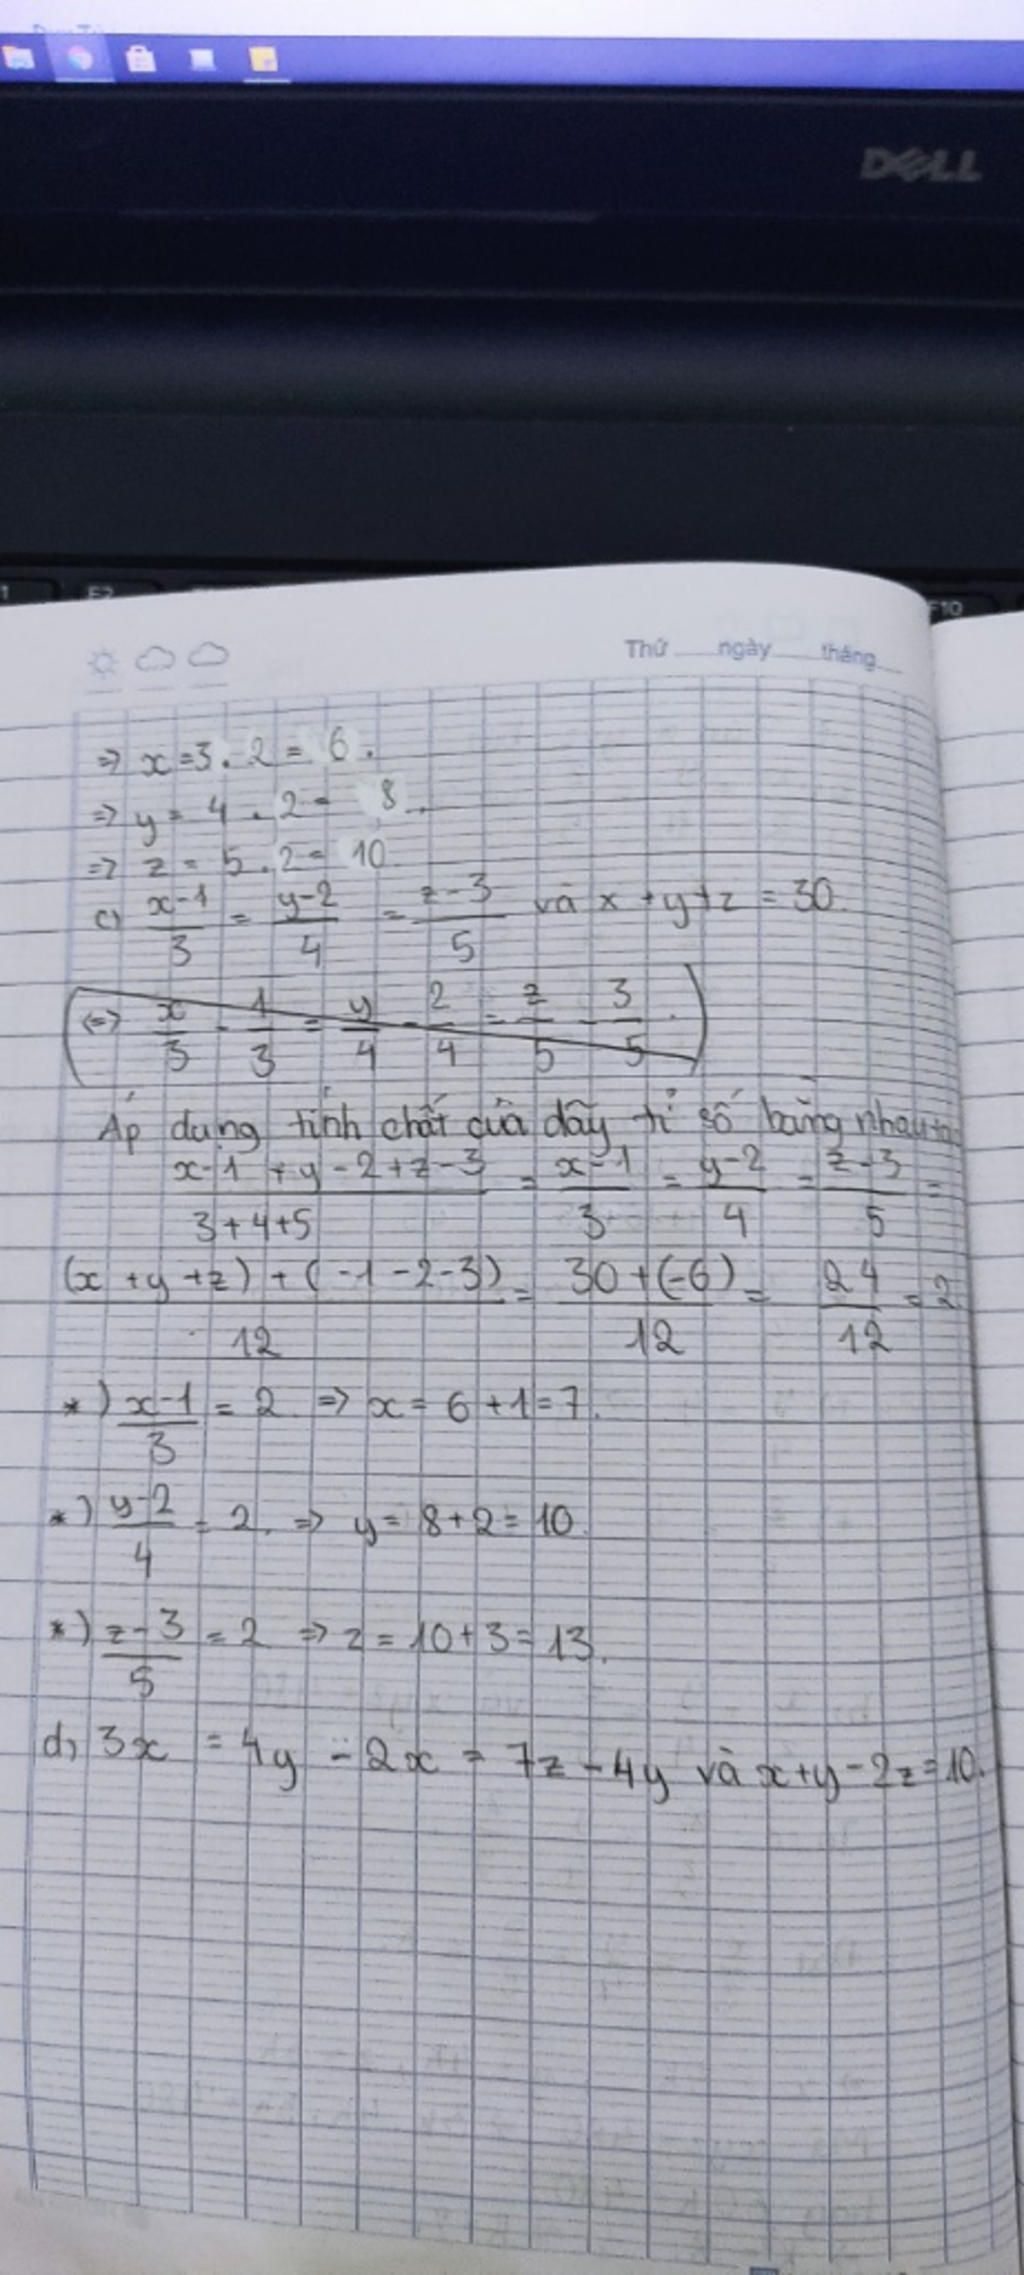 DELL
F2
F10
Thứ ngày tháng
=> x = 3 . 2 = 6 .
=> y = 4 . 2 = 8 .
=> z = 5 . 2 = 10
c) x-1/3 = y-2/4 = z-3/5 và x + y + z = 30.
(<=> x/3 - 1/3 = y/4 - 2/4 = z/5 - 3/5 .)
Áp dụng tính chất của dãy tỉ số bằng nhau
x-1+y-2+z-3/3+4+5 = x-1/3 = y-2/4 = z-3/5 =
(x+y+z)+(-1-2-3)/12 = 30+(-6)/12 = 24/12 = 2
*) x-1/3 = 2 => x = 6+1 = 7.
*) y-2/4 = 2. => y = 8+2 = 10.
*) z-3/5 = 2 => z = 10+3 = 13.
d, 3x = 4y - 2x = 7z - 4y và x+y-2z = 10.